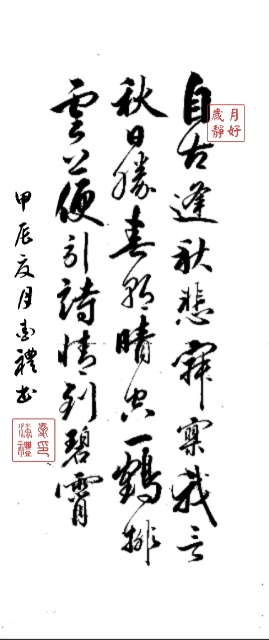 自古逢秋悲寂寥我言
秋日勝春朝晴空一鶴排
雲上便引詩情到碧霄
甲辰夏月禮书
月好
歲靜